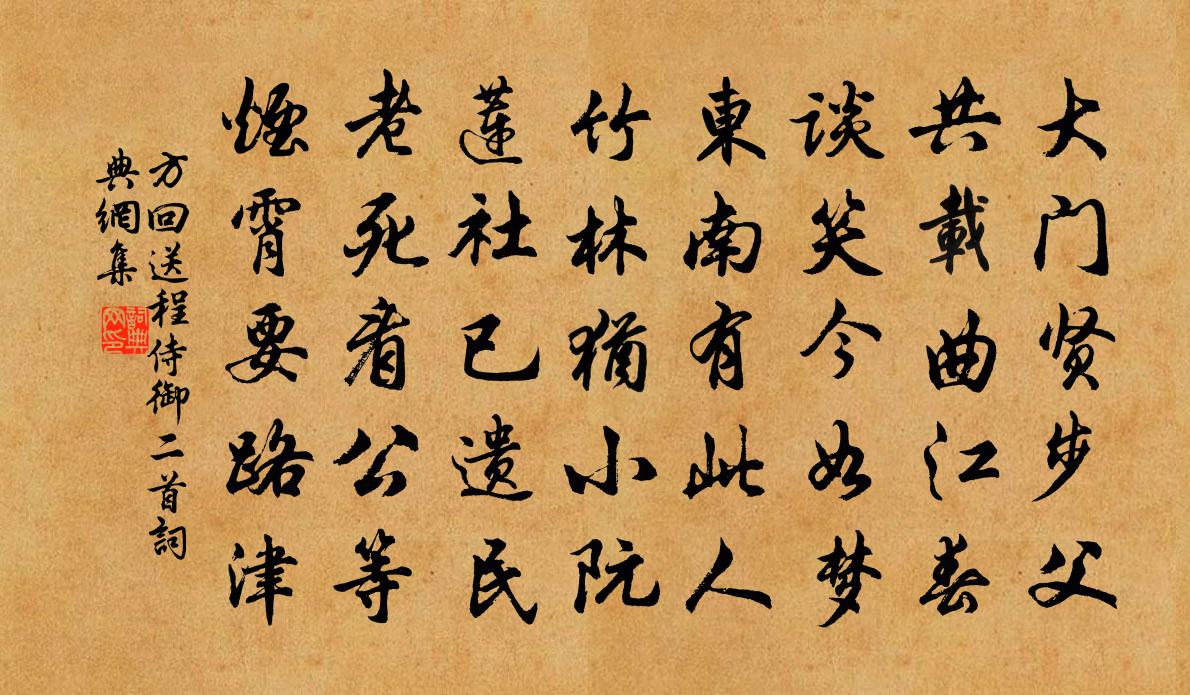 大门贤步父
共載曲江春
談笑今如梦
東南有此人
竹林猶小阮
蓮社已遗民
老死看公等
煙霄要路津
方回送程侍御二首詞
典網集
詞典网印